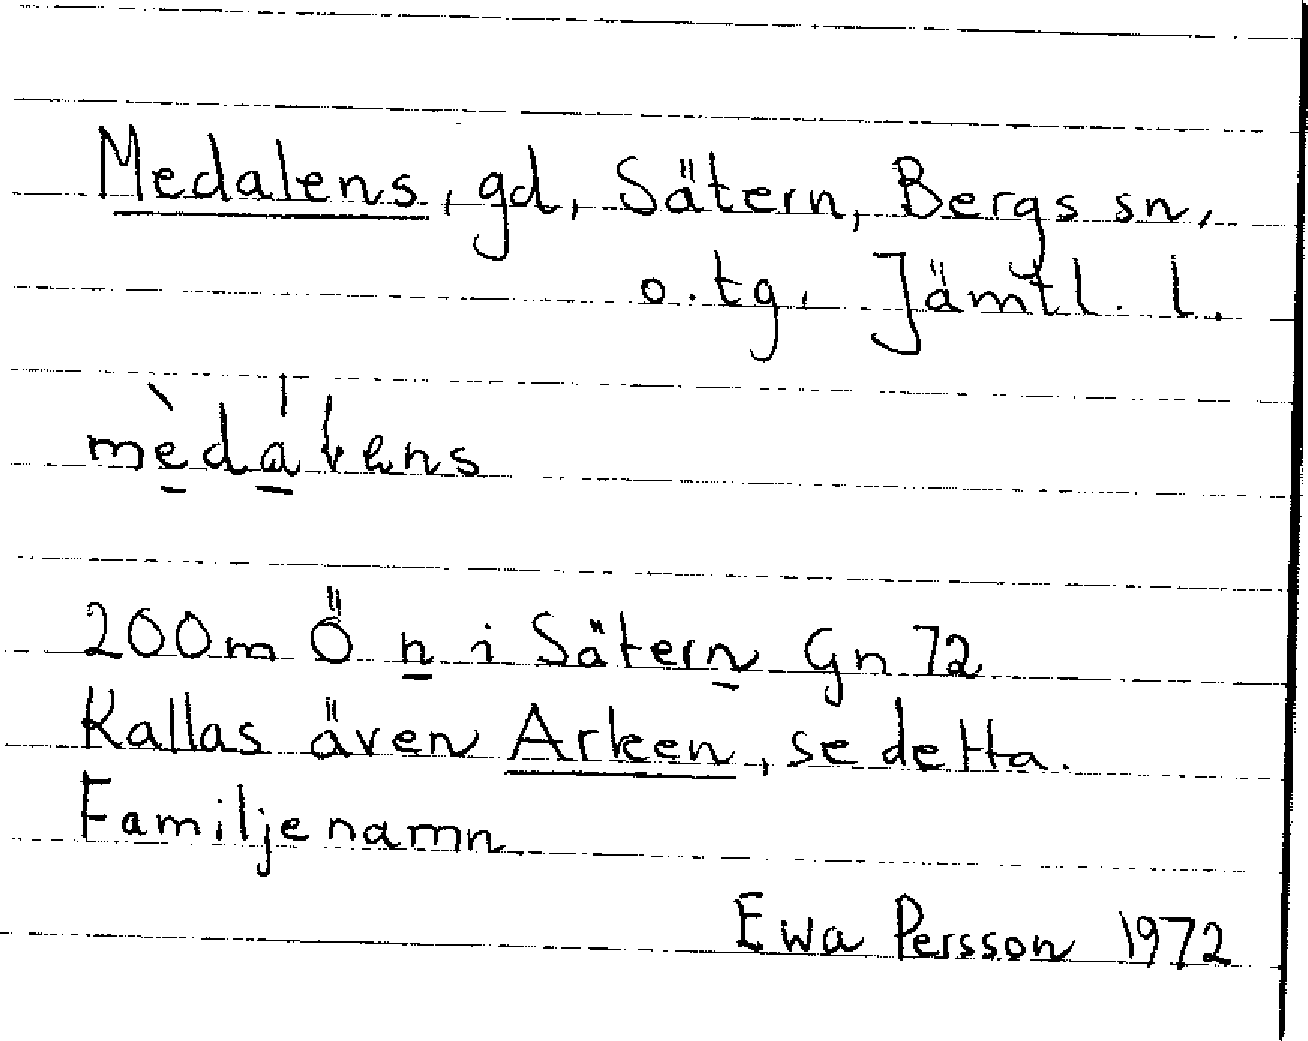 Medalens, gd, Sätern, Bergs sn,
o. tg. Jämtl. l.
200m Ö n i Sätern Gn 72
Kallas även Arken, se detta.
Familjenamn
Ewa Persson 1972